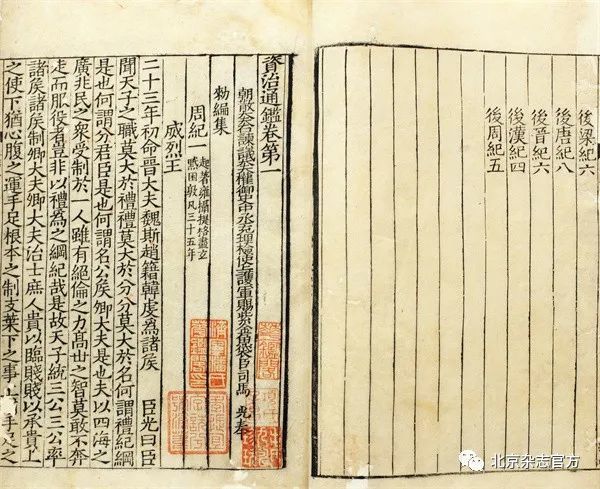 後梁紀六
後唐紀八
後晉紀六
後漢紀四
後周紀五
資治通鑑卷第一
朝散大夫右諫議大夫權御史中丞充理檢使上護軍賜紫金魚袋臣司馬光奉
勑編集
周紀一
起著雍攝提格盡玄
黓困敦凡三十五年
威烈王
二十三年初命晉大夫魏斯趙籍韓虔為諸侯 臣光曰臣
聞天子之職莫大於禮禮莫大於分分莫大於名何謂禮紀綱
是也何謂分君臣是也何謂名公侯卿大夫是也夫以四海之
廣兆民之衆受制於一人雖有絕倫之力高世之智莫敢不奔
走而服役者豈非以禮為之綱紀哉是故天子統三公三公率
諸侯諸侯制卿大夫卿大夫治士庶人貴以臨賤賤以承貴上
之使下猶心腹之運手足根本之制支葉下之事上猶手足之
北京杂志官方